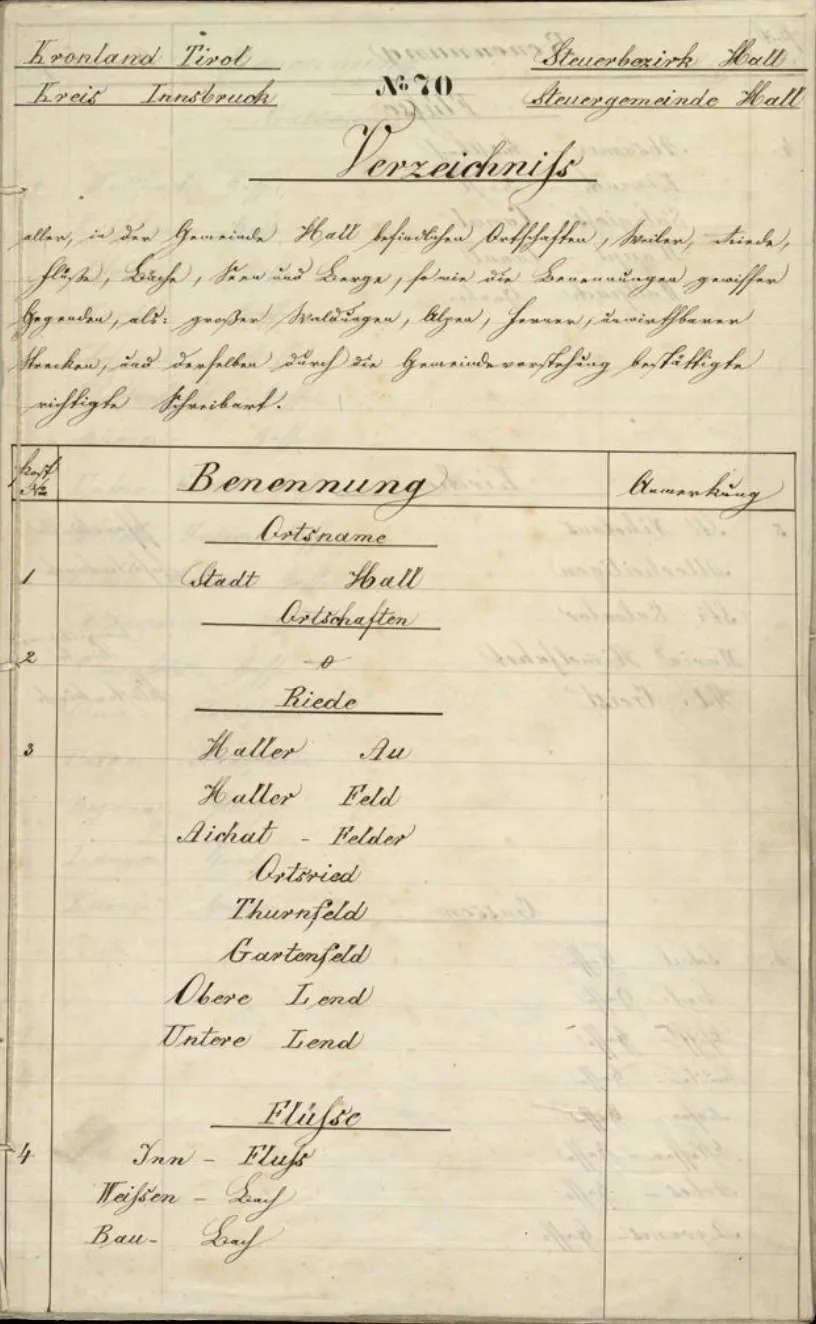 Kronland Tirol
Steuerbezirk Hall
Kreis Innsbruck
No 70
Steuergemeinde Hall
Verzeichniſs
aller, in der Gemeinde Hall befindlichen Ortschaften, Weiler, Riede,
Flüße, Bäche, Seen und Berge, so wie die Benennungen gewisser
Gegenden, als: großer Waldungen, Alpen, Ferner, unwirthbarer
Strecken, und derselben durch die Gemeindevorstehung bestättigte
richtigte Schreibart.
Post
No
Benennung
Anmerkung
Ortsname
1 Stadt Hall
Ortschaften
2 - o
Riede
3 Haller Au
Haller Feld
Aichat - Felder
Ortsried
Thurnfeld
Gartenfeld
Obere Lend
Untere Lend
Flüſse
4 Inn - Fluſs
Weiſsen - Bach
Bau- Bach